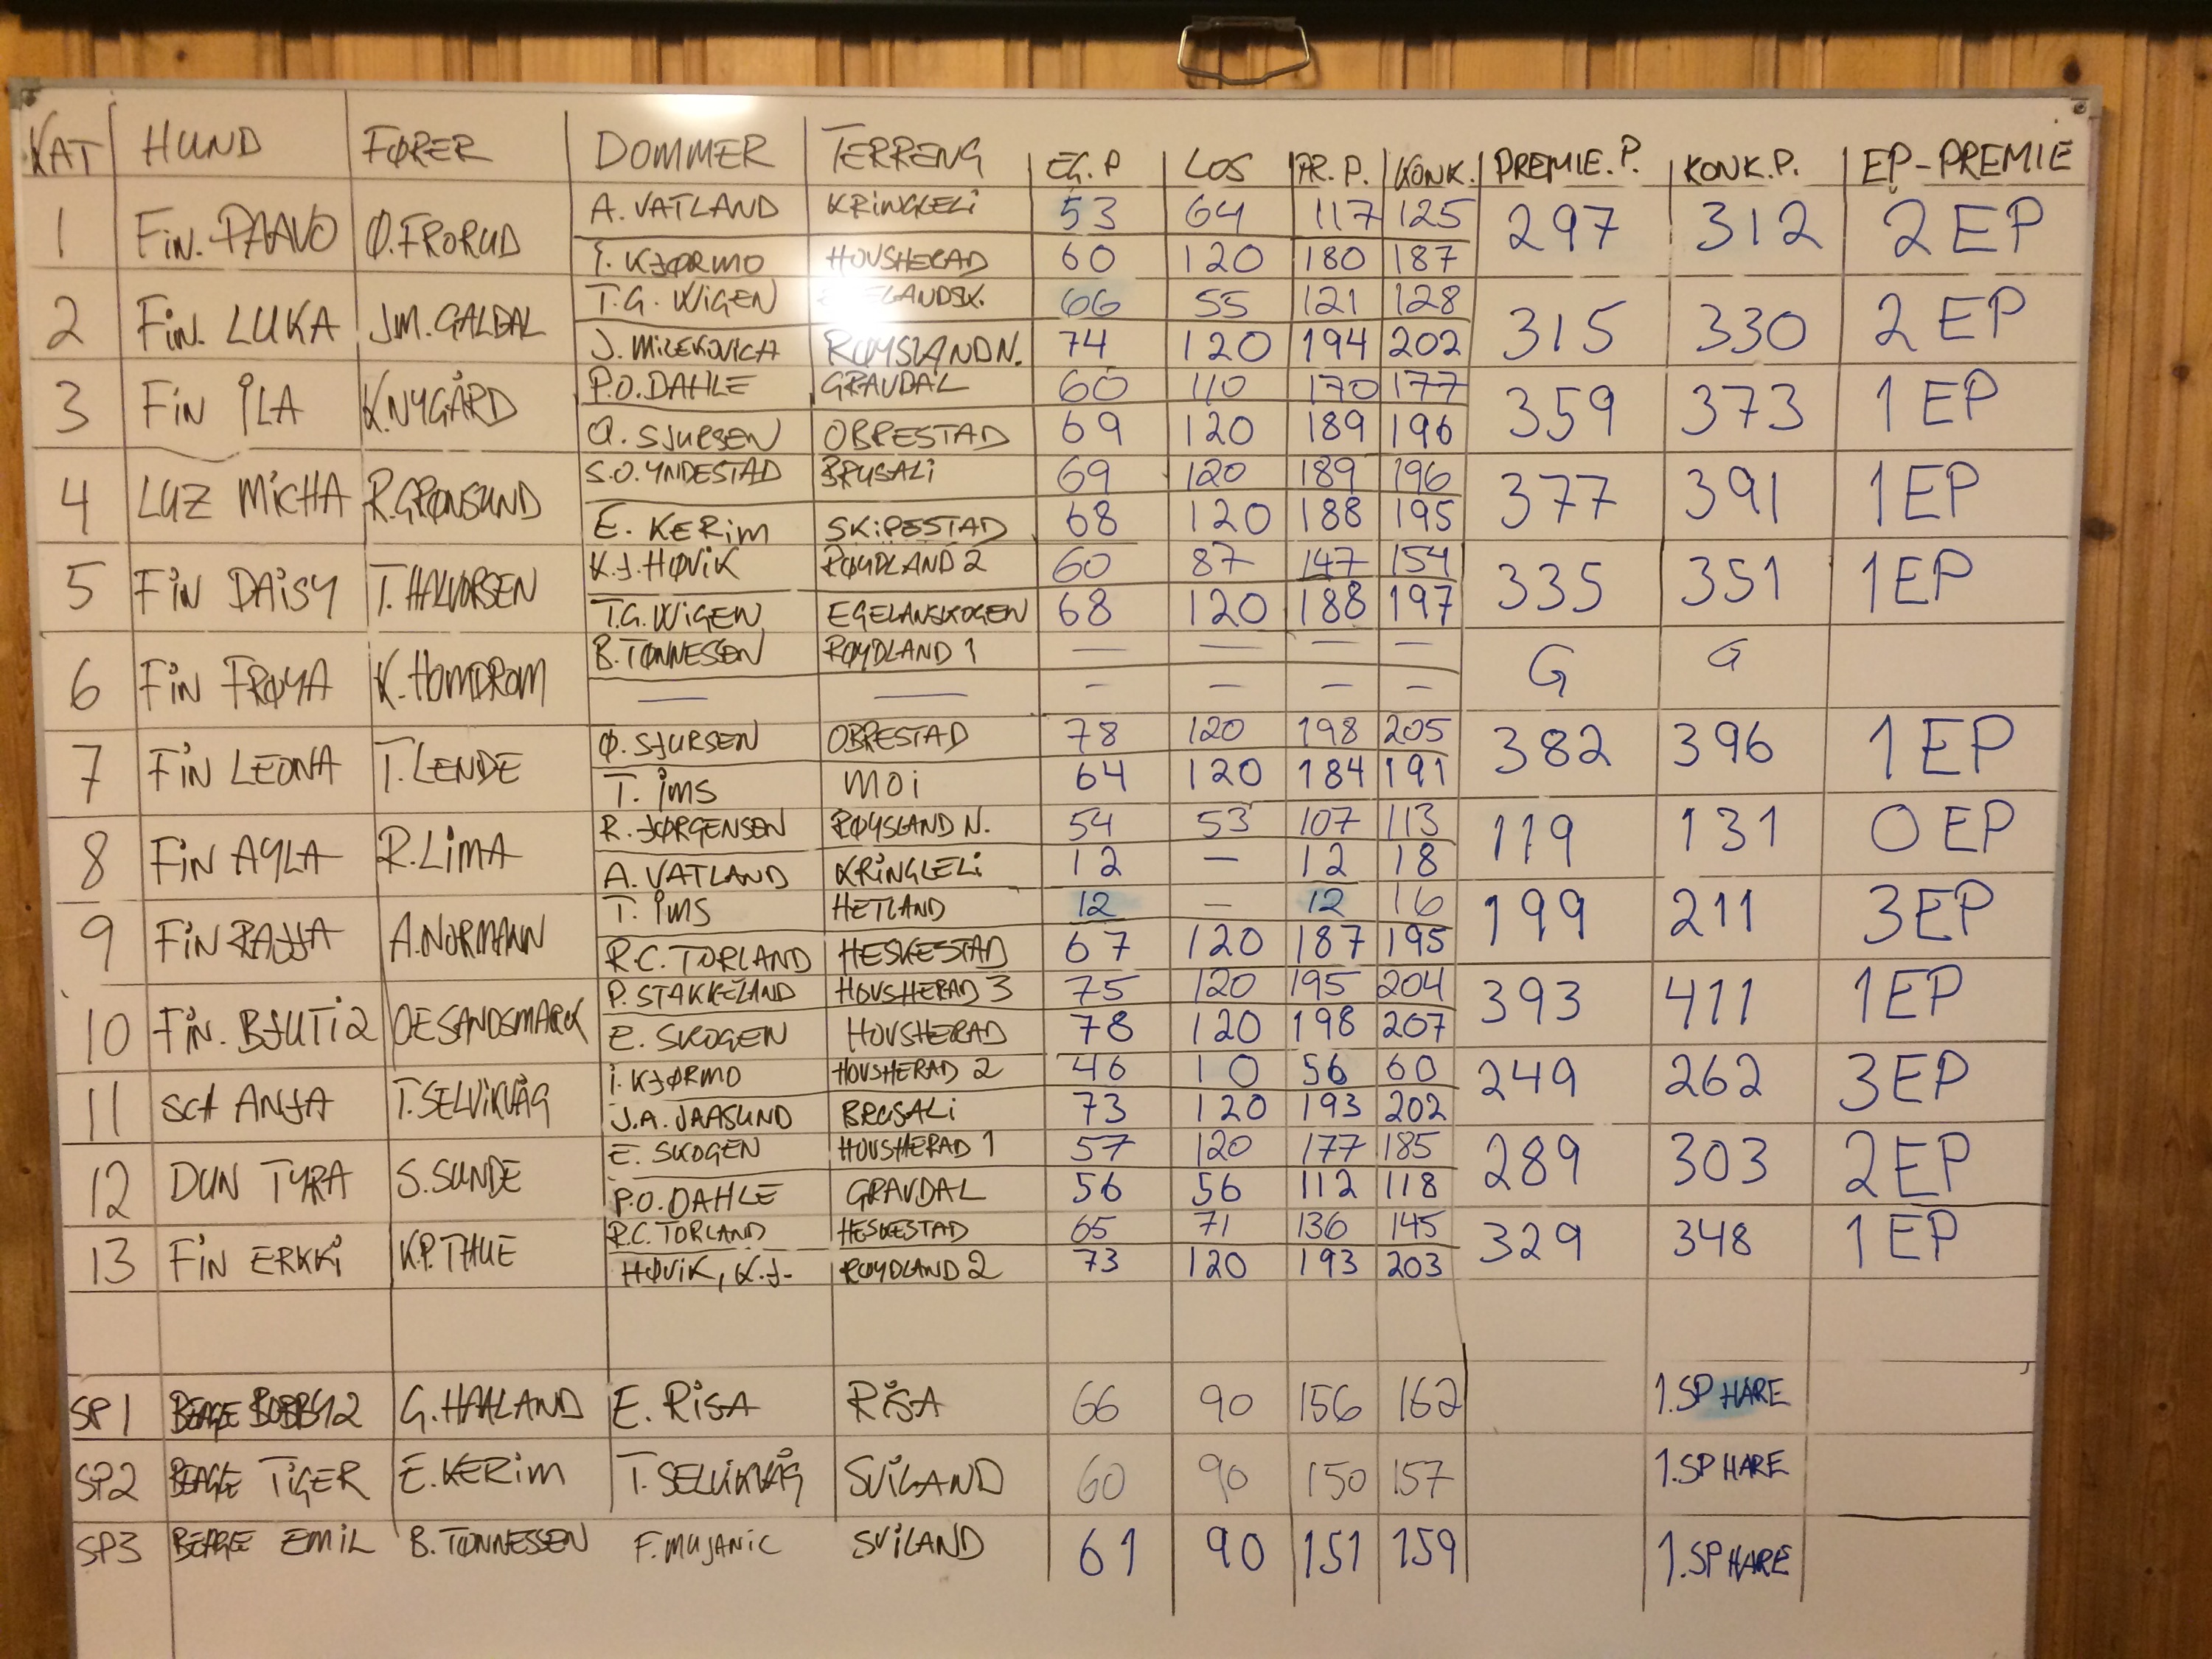 KAT HUND FØRER DOMMER TERRENG EG. P LOS PR. P. KONK. PREMIE. P. KONK. P. EP-PREMIE
1 FiN. PAAVO Ø. FRORUD A. VATLAND KRiNGLELi 53 64 117 125 297 312 2 EP
I. KJØRMO HOVSHERAD 60 120 180 187
2 FiN. LUKA J.M. GALDAL T.G. WiGEN 66 55 121 128 315 330 2 EP
J. MiLEKOVICH RØYSLAND N. 74 120 194 202
3 FiN iLA K. NYGÅRD P.O. DAHLE GRAVDAL 60 110 170 177 359 373 1 EP
Ø. SJURSEN OBRESTAD 69 120 189 196
4 LUZ MiCHA R. GRØNSUND S.O. YNDESTAD BRUSALi 69 120 189 196 377 391 1 EP
E. KERiM SKiPESTAD 68 120 188 195
5 FiN DAiSY T. HALVORSEN K.J. HØViK RØYDLAND 2 60 87 147 154 335 351 1 EP
T.G. WiGEN EGELANSKOGEN 68 120 188 197
6 FiN FRØYA K. HOMDROM B. TØNNESSEN RØYDLAND 1 — — — — G G
— — — — — —
7 FiN LEONA T. LENDE Ø. SJURSEN OBRESTAD 78 120 198 205 382 396 1 EP
T. iMS MOi 64 120 184 191
8 FiN AYLA R. LiMA R. JØRGENSEN RØYSLAND N. 54 53 107 113 119 131 0 EP
A. VATLAND KRiNGLELi 12 — 12 18
9 FiN RAJJA A. NORMANN T. iMS HETLAND 12 — 12 16 199 211 3 EP
R.C. TORLAND HESKESTAD 67 120 187 195
10 FiN. BJUTi2 OE SANDSMARK P. STAKKELAND HOVSHERAD 3 75 120 195 204 393 411 1 EP
E. SKOGEN HOVSHERAD 78 120 198 207
11 SCH ANJA T. SELViKVÅG i. KJØRMO HOVSHERAD 2 46 10 56 60 249 262 3 EP
J.A. JAASUND BRUSALi 73 120 193 202
12 DUN TYRA S. SUNDE E. SKOGEN HOVSHERAD 1 57 120 177 185 289 303 2 EP
P.O. DAHLE GRAVDAL 56 56 112 118
13 FiN ERKKi K.P. THUE R.C. TORLAND HESKESTAD 65 71 136 145 329 348 1 EP
HØViK, K.J. RØYDLAND 2 73 120 193 203
SP1 BEAGLE BOBBY2 G. HAALAND E. RiSA RiSA 66 90 156 162 1. SP HARE
SP2 BEAGLE TiGER E. KERiM T. SELViKVÅG SViLAND 60 90 150 157 1. SP HARE
SP3 BEAGLE EMiL B. TØNNESSEN F. MUJANiC SViLAND 61 90 151 159 1. SP HARE